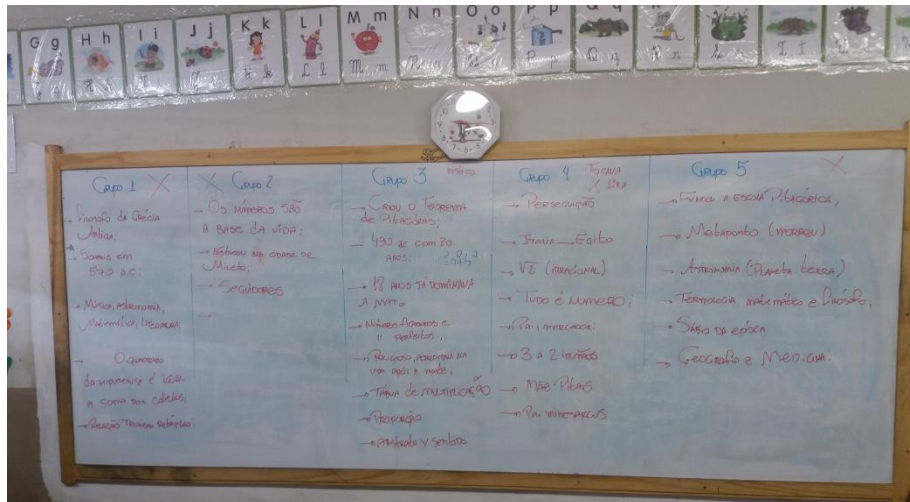 G g
H h
I i
J j
K k
L l
M m
N n
O o
P p
Q q
Grupo 1 X
→ Filósofo da Grécia
Antiga,
→ Samus em
570 a.C.
→ Música, astronomia,
Matemática, Literatura;
→ O quadrado
da hipotenusa é igual
a soma dos catetos;
→ Relação Triangulo Retângulo;
X Grupo 2
→ Os números são
a base da vida;
→ Estudou na cidade de
Mileto;
→ Seguidores
→
Grupo 3
→ Criou o Teorema
de Pitágoras;
→ 490 ac com 80
anos;
→ 18 anos já dominava
a mat.
→ Números
perfeitos,
→ Religioso,
vida após a morte;
→ Tábua de multiplicação
→ Proporção
Grupo 4
Tocava
X Lira
→ Perseguição
→ Itália → Egito
→ √2 (irracional)
→ Tudo é número;
→ Pai mercador
→ 3 a 2 irmãos
→ Mãe Pitais
→ Pai
Grupo 5 X
→ Fundou a escola Pitagórica,
→ Metaponto (morreu)
→ Astronomia (Planeta terra)
→ Termologia matemático e filósofo,
→ Sábio da época
→ Geografia e Medicina.